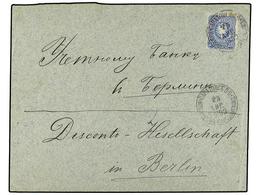 Учетному Банку
в Берлинѣ
Disconti-Gesellschaft
in Berlin